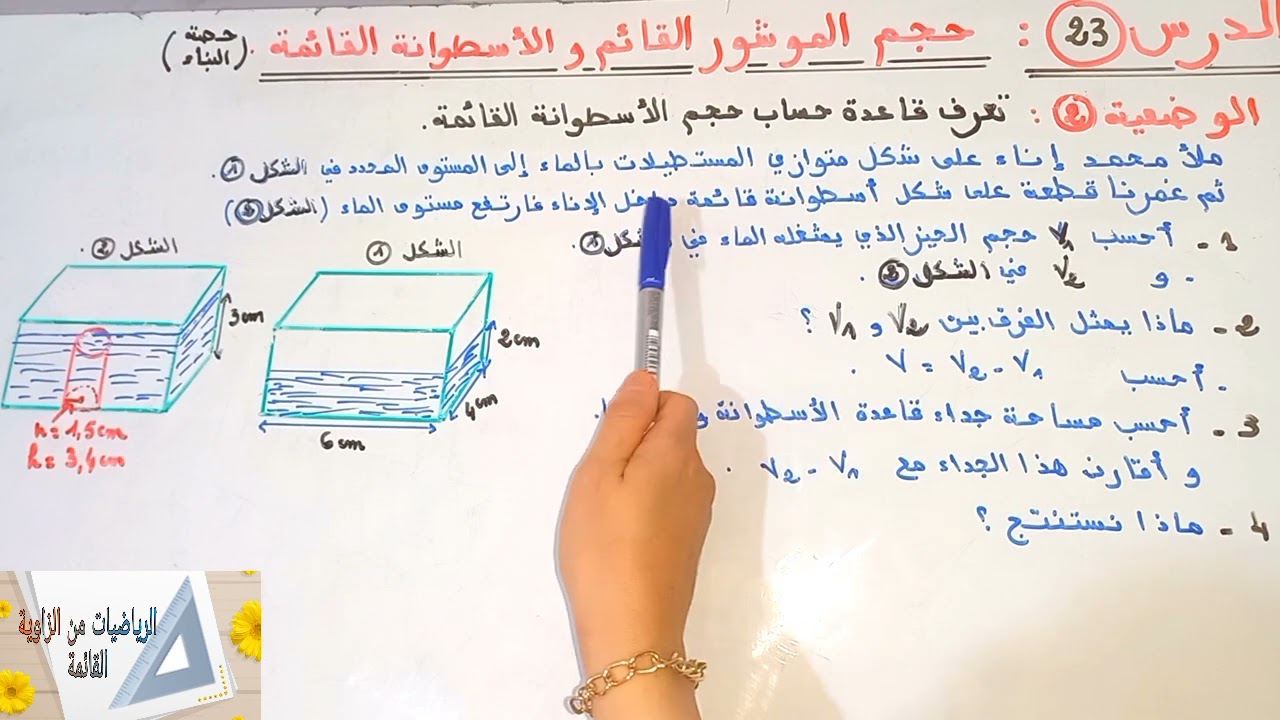 الدرس 23 : حجم الموشور القائم و الأسطوانة القائمة . (حصة البناء)
الوضعية 2 : تعرف قاعدة حساب حجم الأسطوانة القائمة.
ملأ محمد إناء على شكل متوازي المستطيلات بالماء إلى المستوى المحدد في الشكل 1.
ثم غمرنا قطعة على شكل أسطوانة قائمة داخل الإناء فارتفع مستوى الماء (الشكل 2)
1 - أحسب V1 حجم الحيز الذي يشغله الماء في الشكل 1.
- و V2 في الشكل 2.
2 - ماذا يمثل الفرق بين V2 و V1 ؟
- أحسب V = V2 - V1 .
3 - أحسب مساحة جداء قاعدة الأسطوانة و
و أقارن هذا الجداء مع V2 - V1 .
4 - ماذا نستنتج ؟
الشكل 1
2cm
4cm
6cm
الشكل 2
3cm
r = 1,5cm
h = 3,4cm
الرياضيات من الزاوية
القائمة